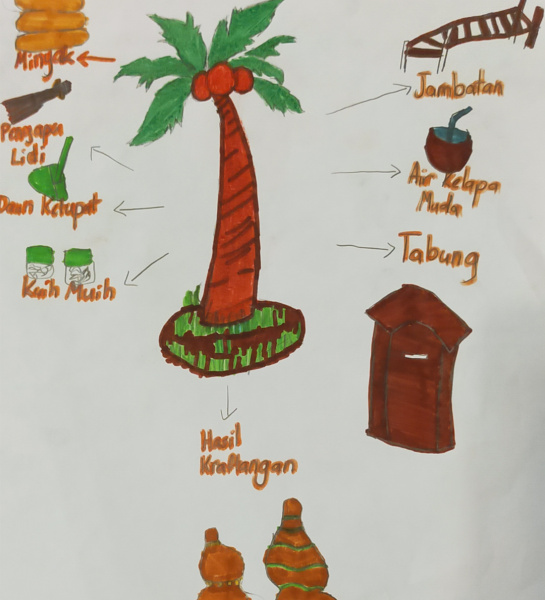 Minyak
Penyapu
Lidi
Daun Ketupat
Kuih Muih
Jambatan
Air Kelapa
Muda
Tabung
Hasil
Kraftangan